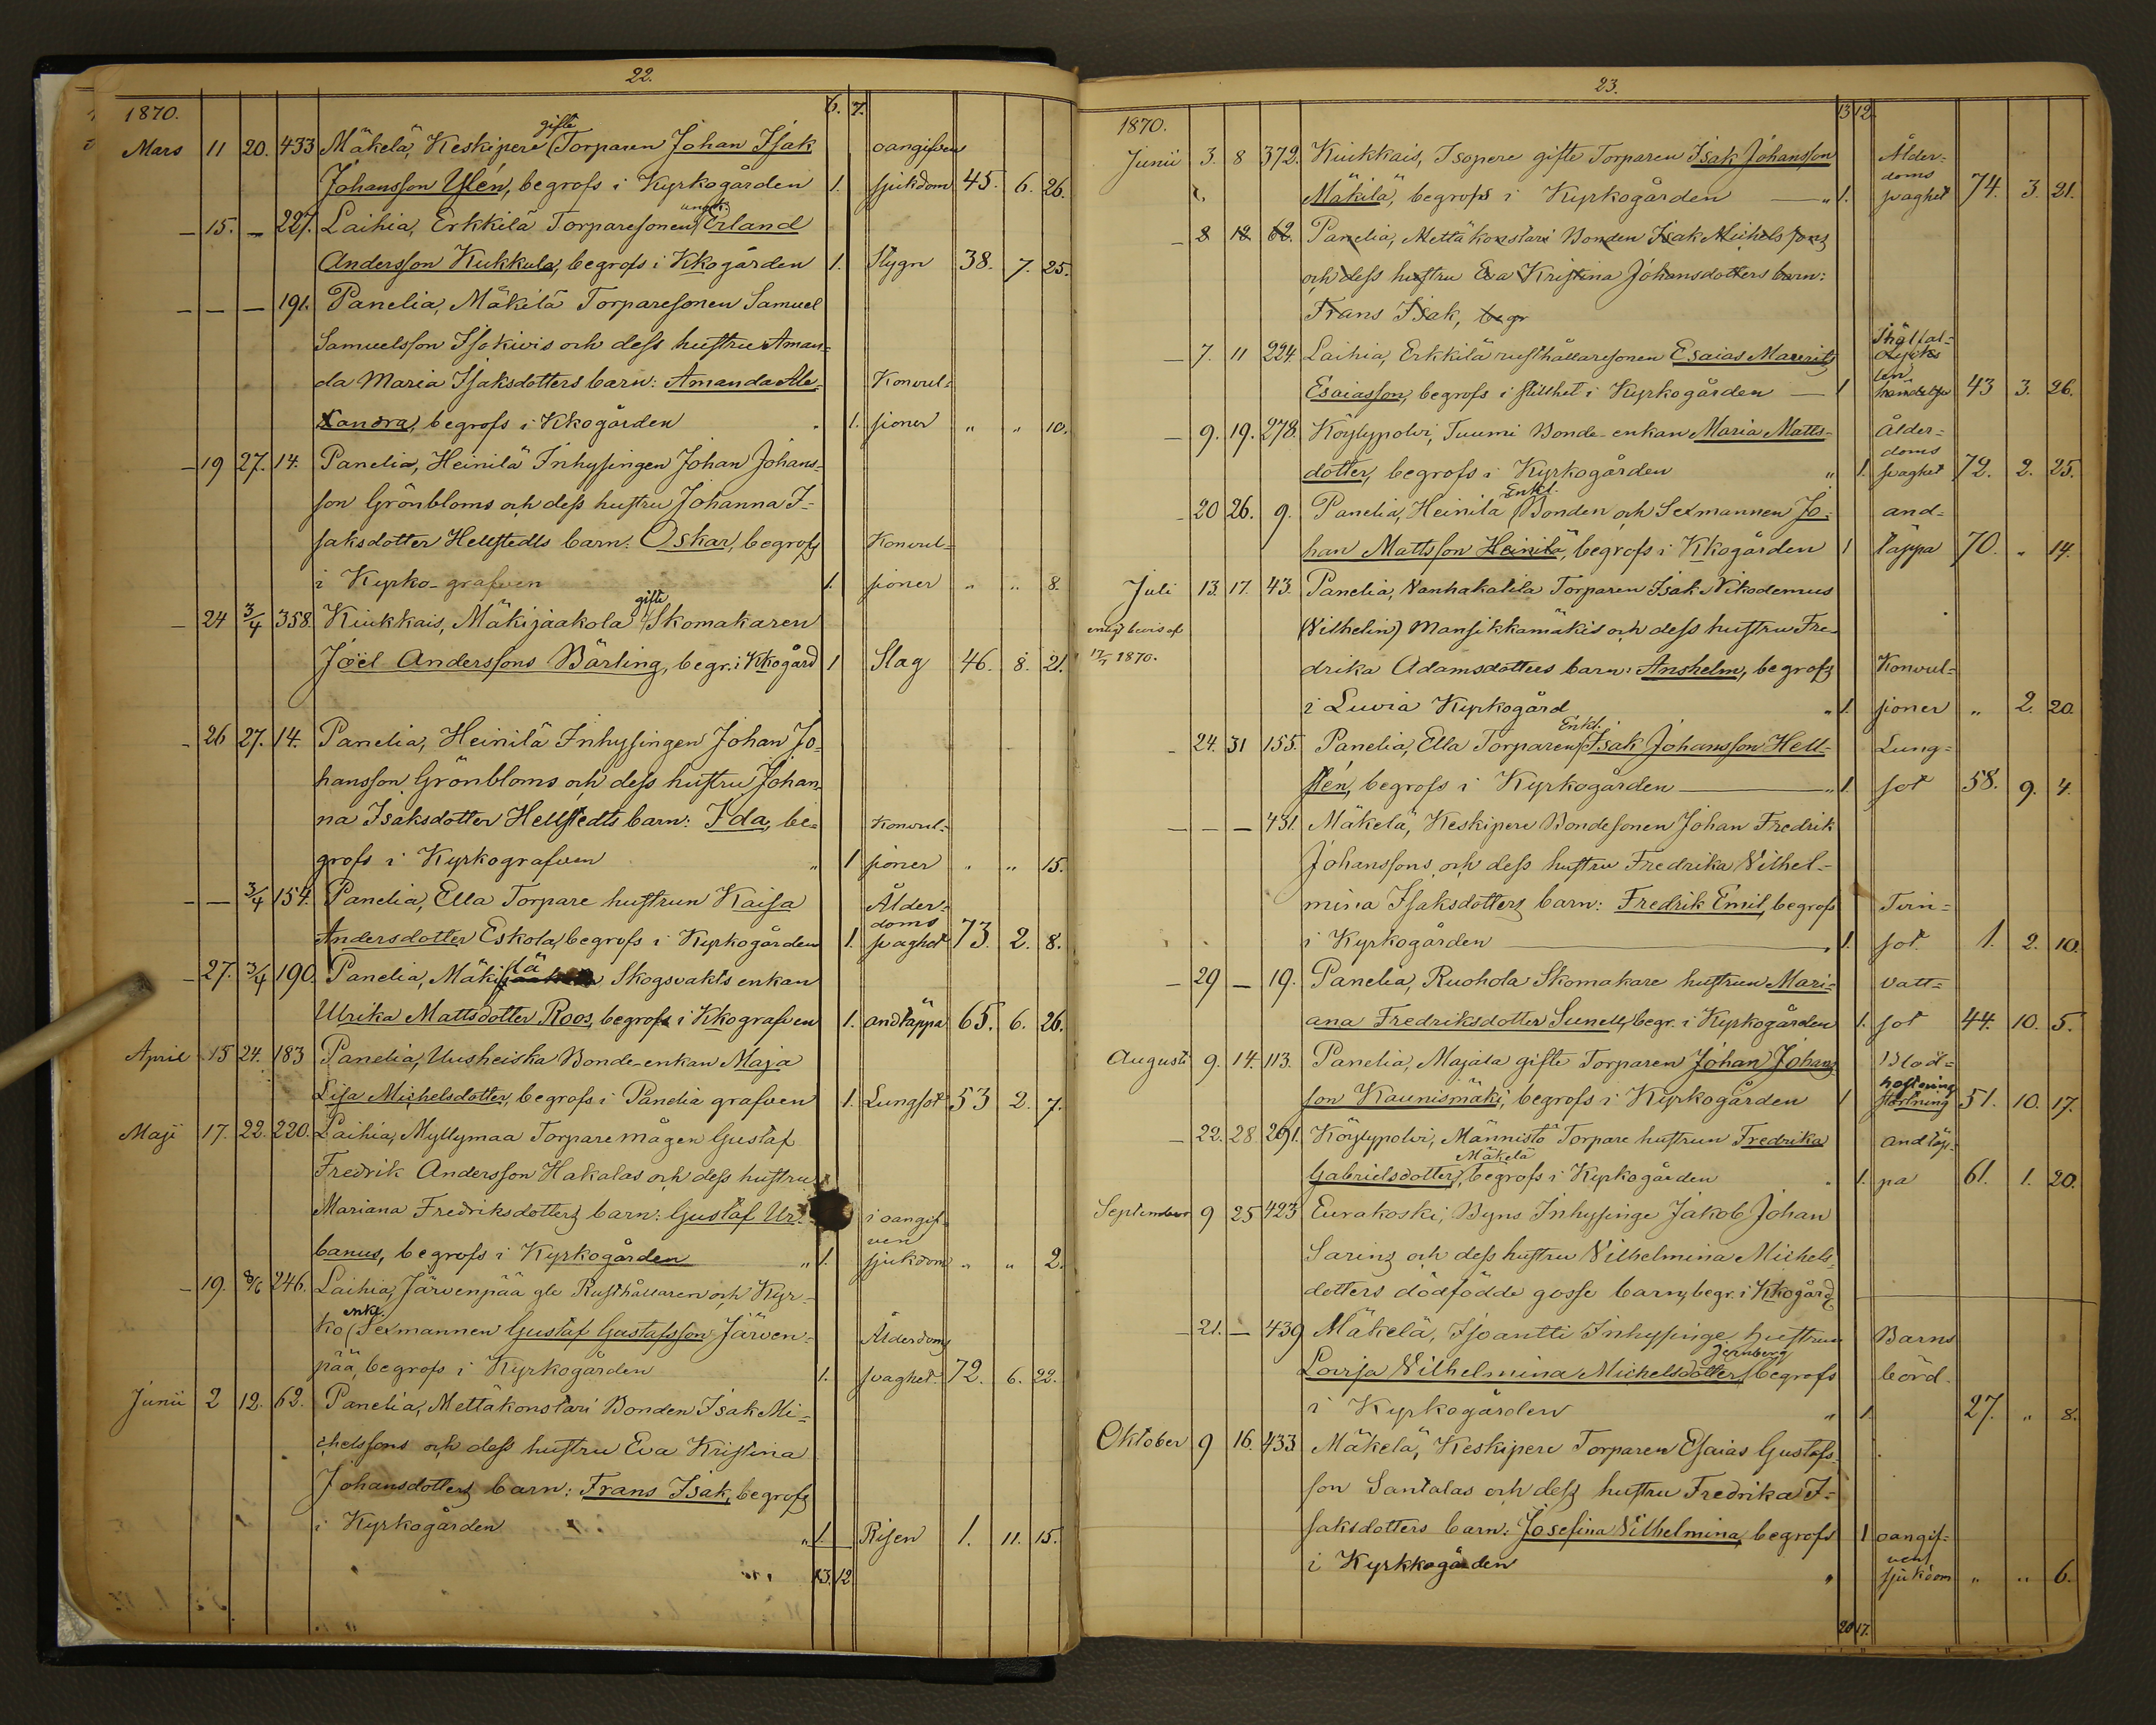 22.
1870. 6. 7.
gifte
Mars 11 20. 433 Mäkelä, Keskipere Torparen Johan Isak oangifven
Johansson Ylén, begrofs i Kyrkogården 1. sjukdom 45. 6. 26.
ungk.
— 15. — 227. Laihia, Erkkilä Torparesonen Erland
Andersson Kukkula, begrofs i Kkogården 1. Stygn 38. 7. 25.
— — — 191. Panelia, Mäkilä Torparesonen Samuel
Samuelsson Isokivis och dess hustru Aman-
da Maria Isaksdotters barn: Amanda Ale- Konvul-
xandra, begrofs i Kkogården 1. sioner " " 10.
— 19 27. 14. Panelia, Heinilä Inhysingen Johan Johans-
son Grönbloms och dess hustru Johanna I-
saksdotter Hellstedts barn: Oskar, begrofs Konvul-
i Kyrko-grafven 1. sioner " " 8.
gifte
— 24 3/4 358. Kiukkais, Mäkijaakola Skomakaren
Joël Anderssons Bärling, begr. i Kkogård 1 Slag 46. 8. 21.
- 26 27. 14. Panelia, Heinilä Inhysingen Johan Jo-
hansson Grönbloms och dess hustru Johan-
na Isaksdotter Hellstedts barn: Ida, be- Konvul-
grofs i Kyrkografven " 1 sioner " " 15.
- — 3/4 154. Panelia, Ella Torpare hustrun Kaisa Ålder-
doms
Andersdotter Eskola, begrofs i Kyrkogården 1. svaghet 73. 2. 8.
lä
— 27. 3/4 190. Panelia, Mäki Skogsvakts enkan
Ulrika Mattsdotter Roos, begrofs i Kkografven 1. andtäppa 65. 6. 26.
April 15 24. 183 Panelia, Uusheiska Bonde-enkan Maja
Lisa Michelsdotter, begrofs i Panelia grafven 1. Lungsot 53 2. 7.
Maji 17. 22. 220. Laihia, Myllymaa Torparemågen Gustaf
Fredrik Andersson Hakalas och dess hustru
Mariana Fredriksdotters barn: Gustaf Ur- i oangif-
ven
banus, begrofs i Kyrkogården " 1. sjukdom " " 2.
— 19. 246. Laihia, Järvenpää gle Rusthållaren och Kyr-
enkl.
ko Sexmannen Gustaf Gustafsson Järven- Ålderdoms
pää, begrofs i Kyrkogården 1. svaghet. 72. 6. 22.
Junii 2 12. 62. Panelia, Mettäkonstari Bonden Isak Mi-
chelssons och dess hustru Eva Kristina
Johansdotters barn: Frans Isak, begrofs
i Kyrkogården " 1. Risen 1. 11. 15.
13. 12
23.
1870. 13 12.
Junii 3. 8 372. Kiukkais, Isopere gifte Torparen Isak Johansson Ålder-
doms
Mäkilä, begrofs i Kyrkogården — " 1. svaghet 74. 3. 21.
— 8 12 62. Panelia, Mettäkonstari Bonden Isak Michelssons
och dess hustru Eva Kristina Johansdotters barn:
Frans Isak, begr
— 7. 11 224. Laihia, Erkkilä rusthållaresonen Esaias Mauritz Olycks
Esaiasson, begrofs i stillhet i Kyrkogården — 1 händelse 43 3. 26.
— 9. 19. 278. Köylypolvi, Tuumi Bonde-enkan Maria Matts- Ålder-
doms
dotter, begrofs i Kyrkogården " 1. svaghet 72. 2. 25.
Enkl.
— 20 26. 9. Panelia, Heinilä Bonden och Sexmannen Jo- and-
han Mattsson Heinilä, begrofs i Kkogården 1 täppa 70. " 14.
Juli 13. 17. 43. Panelia, Vanhakalila Torparen Isak Nikodemus
enligt bevis af (Vilhelin) Mansikkamäkis och dess hustru Fre-
17/7 1870. drika Adamsdotters barn: Anshelm, begrofs Konvul-
i Luvia Kyrkogård " 1. sioner " 2. 20.
Enkl.
- 24. 31 155. Panelia, Ella Torparen Isak Johansson Hell- Lung-
stén, begrofs i Kyrkogården — " 1. sot 58. 9. 4.
— — — 431. Mäkelä, Keskipere Bondesonen Johan Fredrik
Johanssons och dess hustru Fredrika Vilhel-
mina Isaksdotters barn: Fredrik Emil, begrofs Tvin-
i Kyrkogården — " 1. sot. 1. 2. 10.
— 29 — 19. Panelia, Ruohola Skomakare hustrun Mari- vatt-
ana Fredriksdotter Sunell, begr. i Kyrkogården 1. sot 44. 10. 5.
Augusti 9. 14. 113. Panelia, Majala gifte Torparen Johan Johans- Blod-
hostning
son Kaunismäki, begrofs i Kyrkogården 1 störtning 51. 10. 17.
— 22. 28. 291. Köylypolvi, Männistö Torpare hustrun Fredrika andtäp-
Mäkelä
Gabrielsdotter, begrofs i Kyrkogården " 1. pa 61. 1. 20.
September 9 25 423 Eurakoski, Byns Inhysinge Jakob Johan
Sarins och dess hustru Vilhelmina Michels-
dotters dödfödde gosse barn, begr. i Kkogård
— 21. — 439 Mäkelä, Isoantti Inhysinge hustrun Barns
Jernberg
Lovisa Vilhelmina Michelsdotter, begrofs börd.
i Kyrkogården " 1. 27. " 8.
Oktober 9 16. 433 Mäkelä, Keskipere Torparen Esaias Gustafs-
son Santalas och dess hustru Fredrika I-
saksdotters barn: Josefina Vilhelmina, begrofs 1 oangif-
ven
i Kyrkkogården " sjukdom " " 6.
20 17.